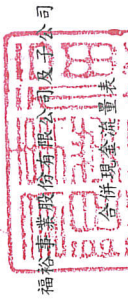 福裕事業股份有限公司及子公司
合併現金流量表